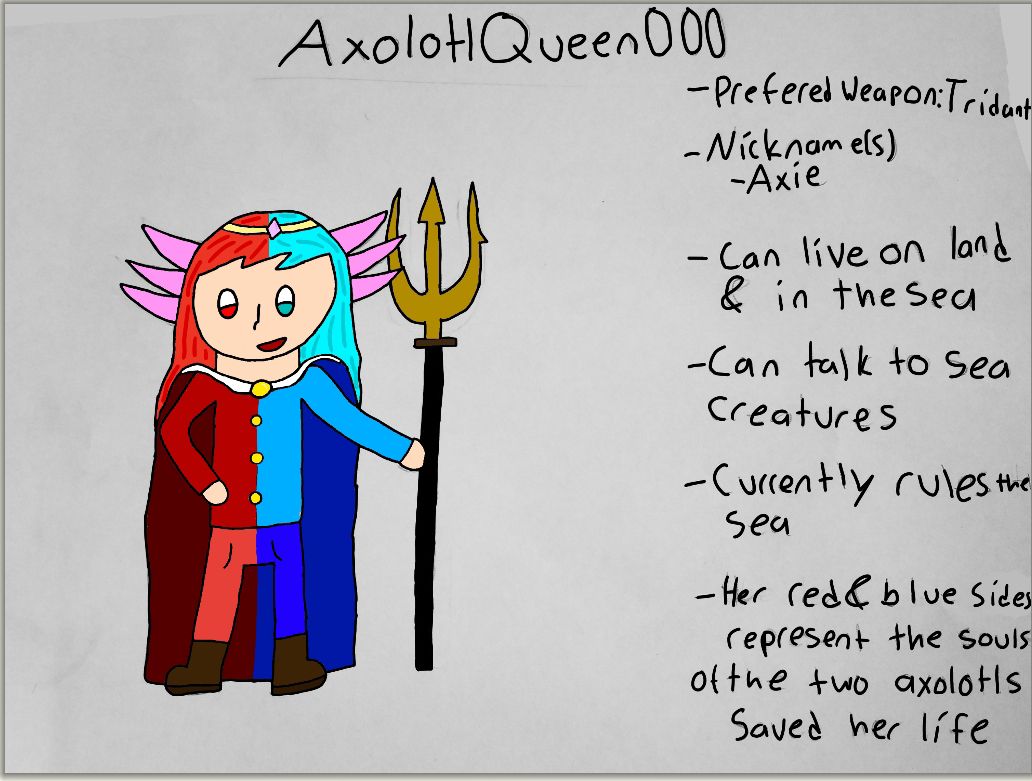 AxolotlQueen000
-Prefered Weapon: Tridant
-Nickname(s)
-Axie
-Can live on land
& in the sea
-Can talk to sea
creatures
-Currently rules the
sea
-Her red & blue sides
represent the souls
of the two axolotls
Saved her life